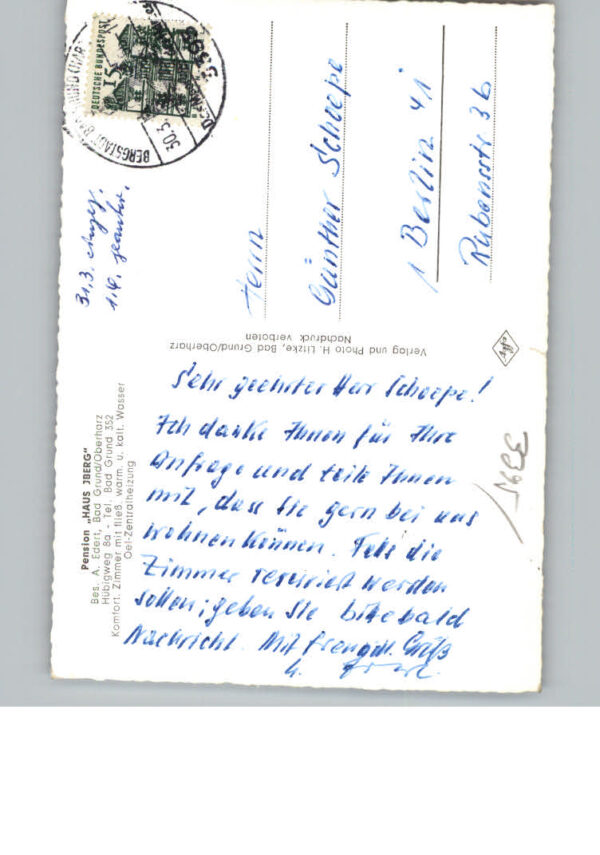 Pension „HAUS JBERG"
Bes. A. Edert, Bad Grund/Oberharz
Hübigweg 8a - Tel. Bad Grund 352
Komfort. Zimmer mit fließ. warm. u. kalt. Wasser
Oel-Zentralheizung
Sehr geehrter Herr Schoepe!
Ich danke Ihnen für Ihre
Anfrage und teile Ihnen
mit, dass Sie gern bei uns
wohnen können. Falls die
Zimmer reserviert werden
sollen, geben Sie bitte bald
Nachricht. Mit freundl. Gruß
Verlag und Photo H. Litzke, Bad Grund/Oberharz
Nachdruck verboten
31.3.
1.4.
DEUTSCHE BUNDESPOST
15
BERGSTADT BAD GRUND (HARZ)
30.3.
Herrn
Günther Schoepe
1 Berlin 41
Rubensstr 36